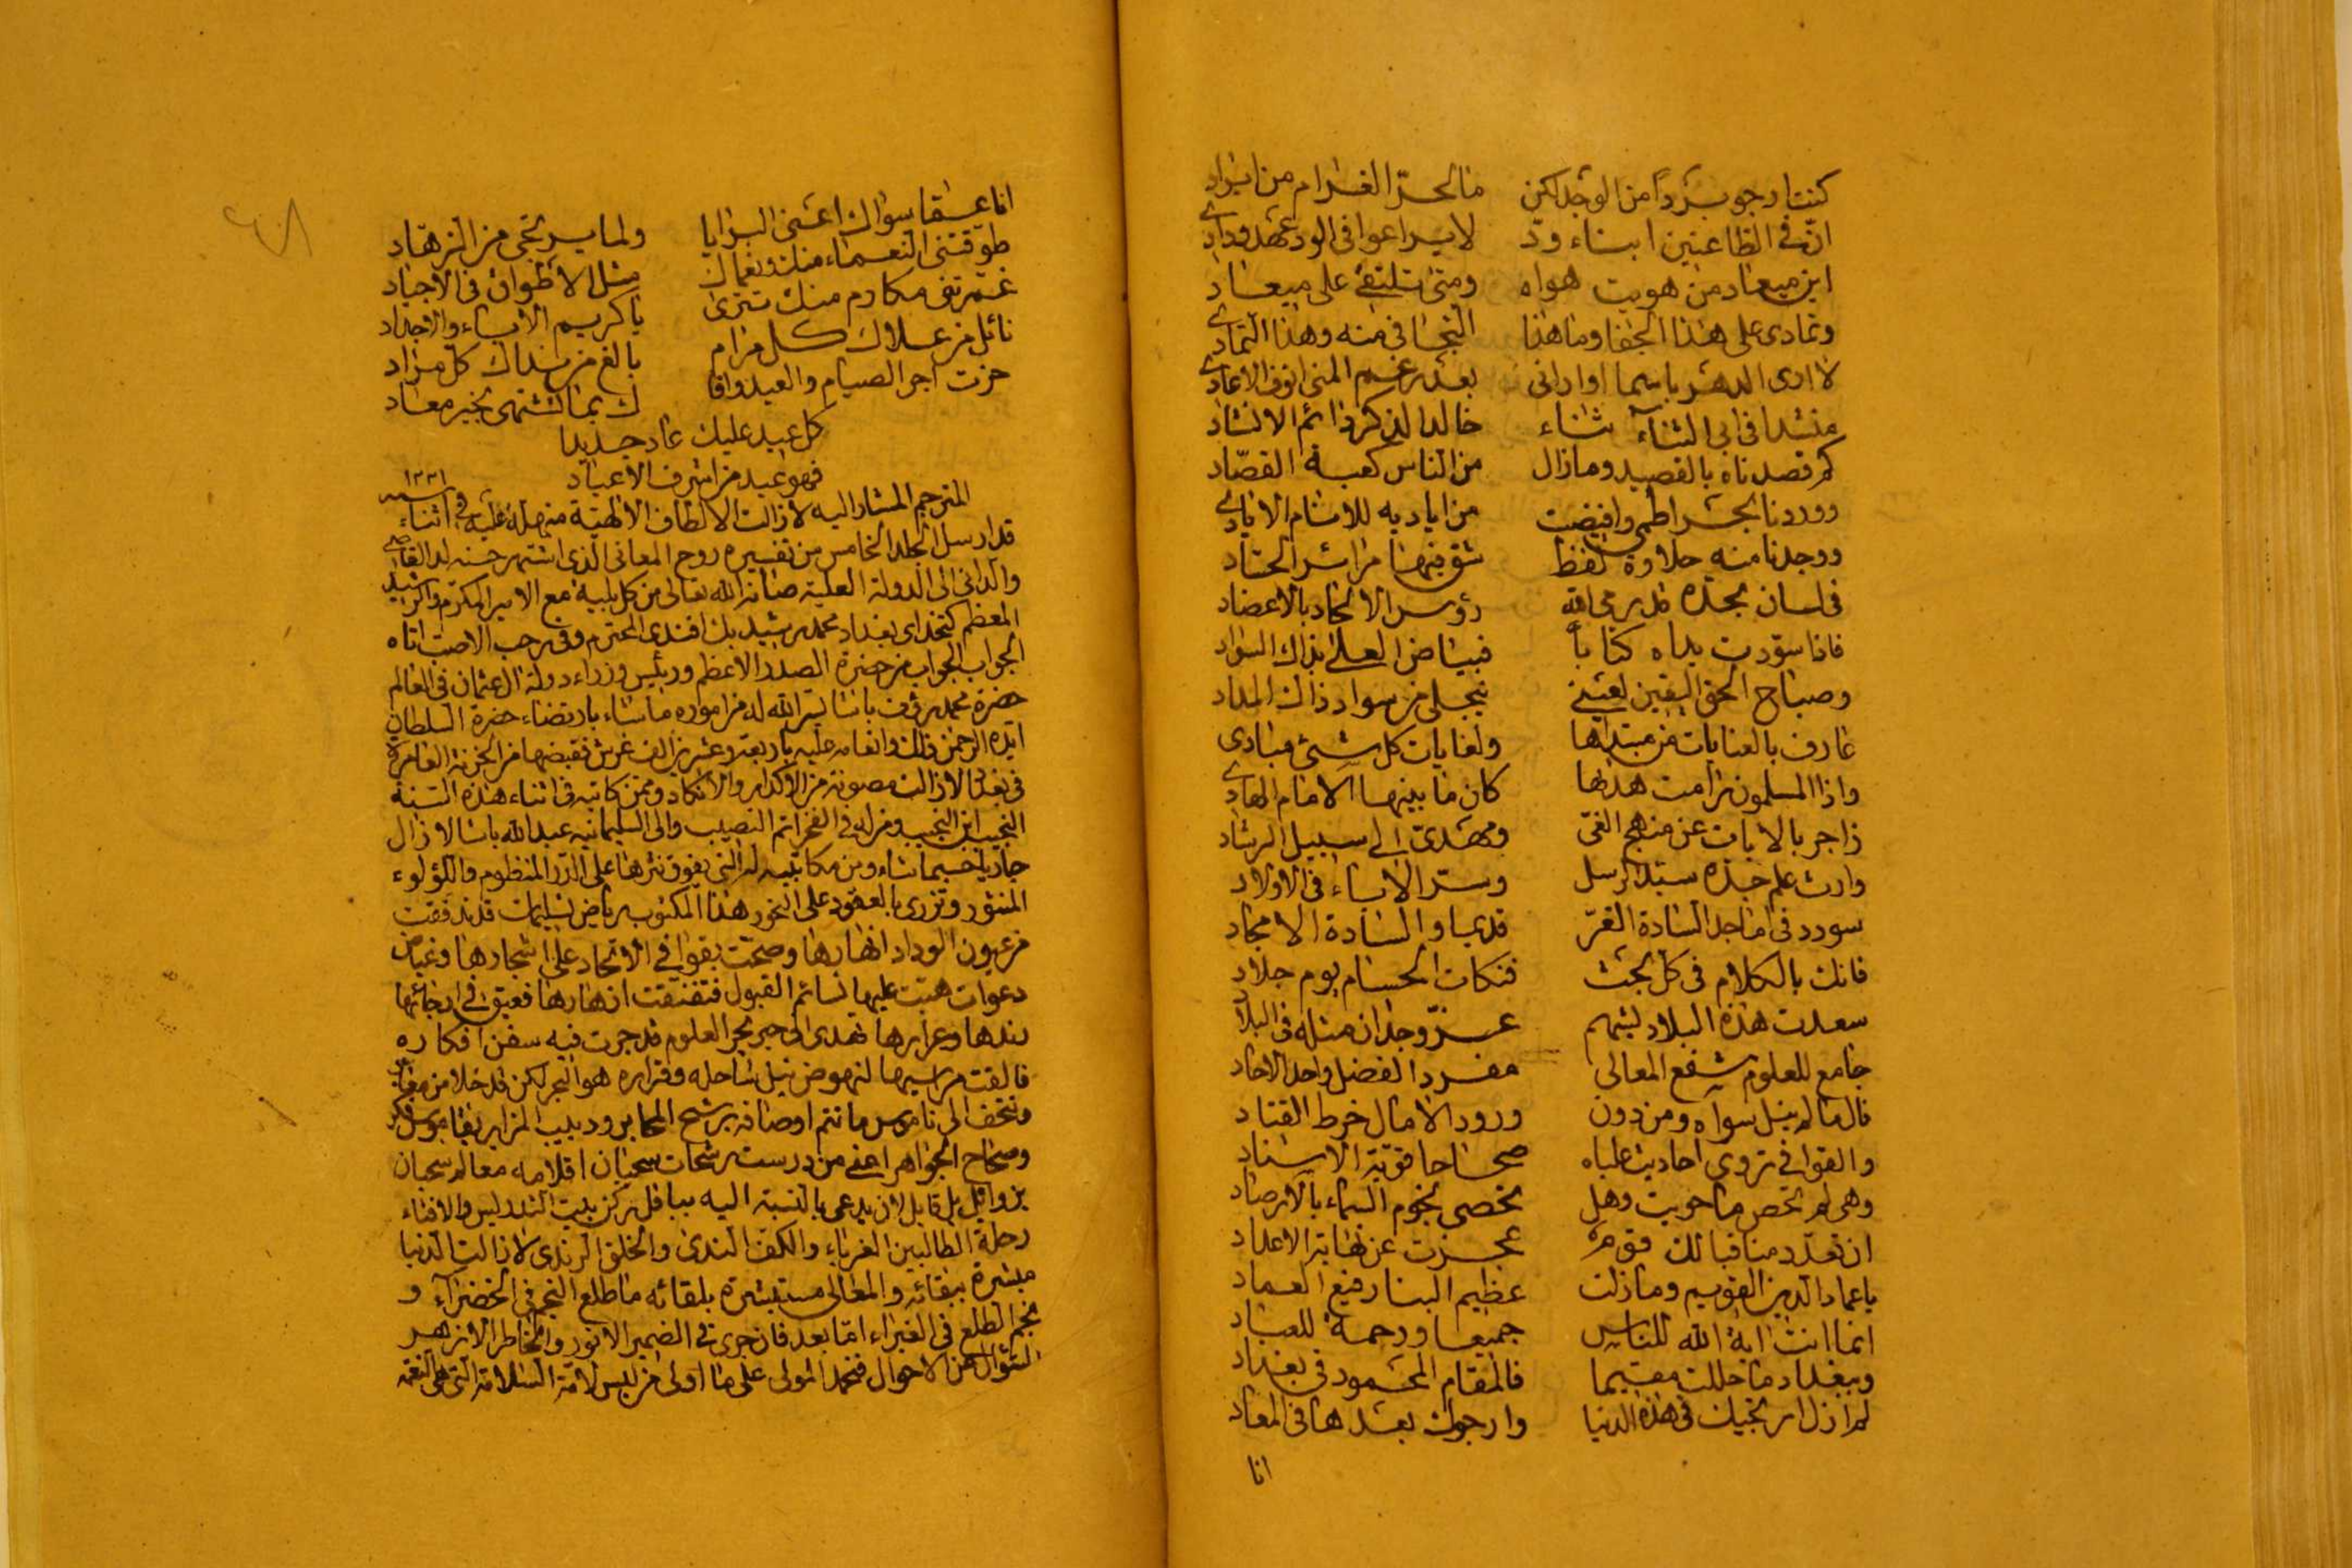 كنت ارجو بردا من الوجد لكن ما لحر الغرام من ابراد
ان في الظاعنين ابناء ود لا يراعوا في الود عهد ودادي
اين ميعاد من هويت هواه ومتى نلتقي على ميعاد
وتمادى على هذا الجفا وما هذا التجافي منه وهذا التمادي
لا ارى الدهر باسما او اراني بعد رغم المنى انوف الاعادي
منشدا في ابي الثنآء ثناء خالدا لذكر دائم الانشاد
كم قصدناه بالقصيد وما زال من الناس كعبة القصاد
ووردنا بحرا طمى وافيضت من اياديه للانام الايادي
ووجدنا منه حلاوة لفظ شق فيها مرائر الحساد
في لسان مجده قد برى الله رؤس الالحاد بالاعضاد
فاذا سودت يداه كتابا فبياض العلى بذاك السواد
وصباح الحق اليقين لعيني ينجلي من سواد ذاك المداد
عارف بالعنايات من مبتداها ولغايات كل شئ مبادي
واذا المسلمون رامت هداها كان ما بينها الامام الهادي
زاجر بالايات عن منهج الغي ومهدي الى سبيل الرشاد
وارث علم جده سيد الرسل وسر الاباء في الاولاد
سودد في اماجد السادة الغر قديما والسادة الامجاد
فاتك بالكلام في كل بحث فتكات الحسام يوم جلاد
سعدت هذه البلاد بشهم عز وجدان مثله في البلاد
جامع للعلوم شفع المعالي مفرد الفضل واحد الاحاد
قال ما لم ينل سواه ومن دون ورود الامال خرط القتاد
والقوافي تروي احاديث علياه صحاحا قوية الاسناد
وهي لم تحص ما حويت وهل تحصى نجوم السماء بالارصاد
ان تعدد مناقبا لك قوم عجزت عن نهاية الاعداد
يا عماد الدين القويم وما زلت عظيم البنا رفيع العماد
انما انت اية الله للناس جميعا ورحمة للعباد
وببغداد ما حللت مقيما فالمقام المحمود في بغداد
لم ازل ارتجيك في هذه الدنيا وارجوك بعدها في المعاد
انا
انا عما سواك اغنى البرايا ولما يرتجى من الزهاد
طوقتني النعماء منك ونعماك مثل الاطواق في الاجياد
غمرتني مكارم منك تترى يا كريم الاباء والاجداد
نائل من علاك كل مرام بالغ من نداك كل مراد
حزت اجر الصيام والعيد وافا ك بما تشتهي بخير معاد
كل عيد عليك عاد جديدا
فهو عيد من اشرف الاعياد
المترجم المشار اليه لا زالت الالطاف الالهية منهلة عليه في اثناء سنة ١٢٣١
قد ارسل الجلد الخامس من تفسيره روح المعاني الذي اشتهر حسنه لدا القاصي
والداني الى الدولة العلية صانها الله تعالى من كل بلية مع الامير المكرم والرشيد
المعظم كتخداي بغداد محمد رشيد بك افندي المحترم وفي رجب الاصب اتاه
الجواب لجواب من حضرة الصدر الاعظم ورئيس وزراء دولة ال عثمان في العالم
حضرة محمد رؤف باشا يسر الله له من اموره ما شاء بارتضاء حضرة السلطان
ايده الرحمن ذلك وانعامه عليه باربعة وعشرين الف غرش فقبضها من الخزينة العامرة
في بغداد لا زالت مصونة من الاكدار والانكاد وممن كاتبه في اثناء هذه السنة
النجيب ابن النجيب ومن له في الفخر اتم النصيب والي السليمانية عبد الله باشا لا زال
جاريا حسبما شاء ومن مكاتيبه له التي يفوق نثرها على الدر المنظوم واللؤلوء
المنثور وتزري بالعقود على النحور هذا المكتوب رياض تسليمات قد تدفقت
من عيون الوداد انهارها وصحت بقوافي الاتحاد على اشجارها وغياض
دعوات هبت عليها نسائم القبول فتفتقت ازهارها فعبق في ارجائها
ندها وعرارها تهدى الى حبر بحر العلوم قد جرت فيه سفن افكاره
فالقت مراسيها لنهوض نيل ساحله وقراره هو البحر لكن قد خلا من
وتتحف الى ناموس ما تتم اوصافه برشح المحابر ودبيب المزابر بقاموس
وصحاح الجواهر اعني من درست رشحات سحبان اقلامه معالم سحبان
بن وائل بل قابل لان يدعى بالنسبة اليه بباقل ركن بيت التدريس والافتاء
رحلة الطالبين الغرباء والكف الندي والخلق الرندي لا زالت الدنيا
مبشرة ببقائه والمعالي مستبشرة بلقائه ما طلع النجم في الخضرآء و
نجم الطلع في الغبراء اما بعد فان جرى في الضمير الانور والخاطر الازهر
السؤال عن الاحوال فنحمد المولى على ما اولى من لبس لامة السلامة التي هي النعمة